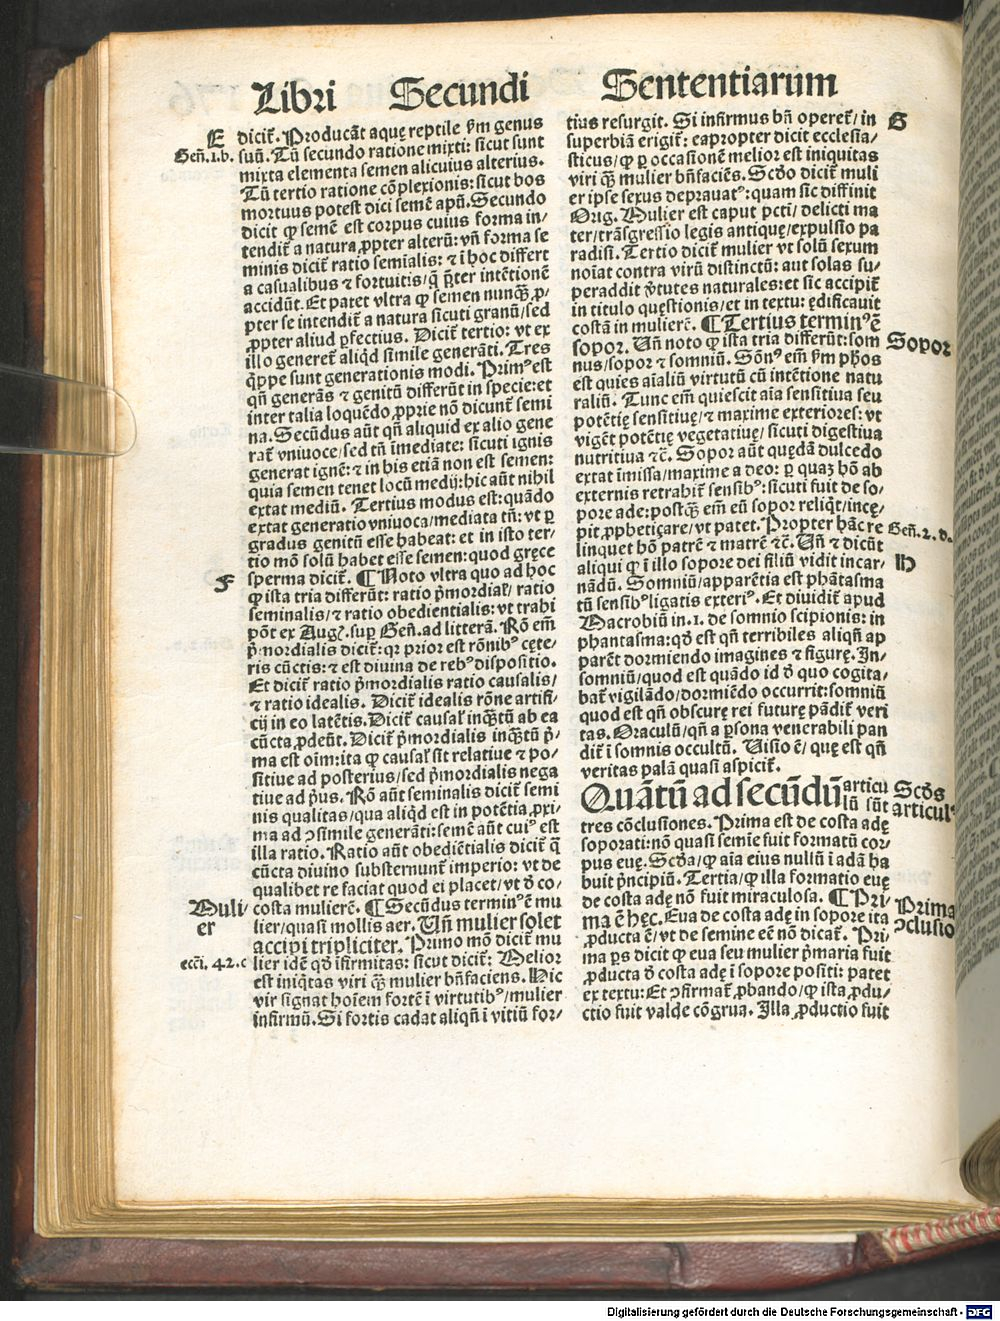 Libri Secundi Sententiarum
E
Geñ.1.b.
dicit̃. Producãt aquę reptile ẜm genus
suũ. Tũ secundo ratione mixti: sicut sunt
mixta elementa semen alicuius alterius.
Tũ tertio ratione cõplexionis: sicut bos
mortuus potest dici semẽ apũ. Secundo
dicit ꝙ semẽ est corpus cuius forma in/
tendit̃ a natura ꝓpter alterũ: vñ forma se
minis dicit̃ ratio semialis: ⁊ ĩ hoc differt
a casualibus ⁊ fortuitis/q̃ p̃ter intẽtionẽ
accidũt. Et patet vltra ꝙ semen nunq̃ȝ ꝓ/
pter se intendit̃ a natura sicuti granũ/sed
ꝓpter aliud ꝑfectius. Dicit̃ tertio: vt ex
illo generet̃ aliqd simile generãti. Tres
q̃ppe sunt generationis modi. Primꝰ est
qñ generãs ⁊ genitũ differũt in specie: et
inter talia loquẽdo ꝓprie nõ dicunt̃ semi
na. Secũdus aũt qñ aliquid ex alio gene
rat̃ vniuoce/sed tñ ĩmediate: sicuti ignis
generat ignẽ: ⁊ in his etiã non est semen:
quia semen tenet locũ medij: hic aũt nihil
extat mediũ. Tertius modus est: quãdo
extat generatio vniuoca/mediata tñ: vt ꝑ
gradus genitũ esse habeat: et in isto ter/
tio mõ solũ habet esse semen: quod gręce
F
sperma dicit̃. ¶ Noto vltra quo ad hoc
ꝙ ista tria differũt: ratio p̃mordial̃/ ratio
seminalis/⁊ ratio obedientialis: vt trahi
põt ex Augꝰ. suꝑ Geñ. ad litterã. Rõ em̃
p̃mordialis dicit̃: qꝛ prior est rõnibꝰ cęte/
ris cũctis: ⁊ est diuina de rebꝰ dispositio.
Et dicit̃ ratio p̃mordialis ratio causalis/
⁊ ratio idealis. Dicit̃ idealis rõne artifi/
cij in eo latẽtis. Dicit̃ causal̃ inq̃tũ ab ea
cũcta ꝓdeũt. Dicit̃ p̃mordialis inq̃tũ p̃/
ma est oĩm: ita ꝙ causal̃ sit relatiue ⁊ po/
sitiue ad posterius/sed p̃mordialis nega
tiue ad p̃us. Rõ aũt seminalis dicit̃ semi
nis qualitas/qua aliqd est in potẽtia ꝓxi/
ma ad ↄsimile generãti: semẽ aũt cuiꝰ est
illa ratio. Ratio aũt obediẽtialis dicit̃ q̃
cũcta diuino substernunt̃ imperio: vt de
qualibet re faciat quod ei placet/vt ð co/
Muli/
er
costa mulierẽ. ¶ Secũdus terminꝰ ẽ mu
lier/quasi mollis aer. Vñ mulier solet
accipi tripliciter. Primo mõ dicit̃ mu
ecci. 42.c
lier idẽ qð ĩfirmitas: sicut dicit̃: Melior
est iniqtas viri q̃ȝ mulier bñfaciens. Hic
vir signat hoĩem fortẽ ĩ virtutibꝰ/mulier
infirmũ. Si fortis cadat aliqñ ĩ vitiũ for/
G
tius resurgit. Si infirmus bñ operet̃/ in
superbiã erigit̃: eapropter dicit ecclesia/
sticus/ꝙ ꝑ occasionẽ melior est iniquitas
viri q̃ȝ mulier bñfaciẽs. Scðo dicit̃ muli
er ipse sexus deprauatꝰ: quam sic diffinit
Orig. Mulier est caput pcti/ delicti ma
ter/trãsgressio legis antiquę/expulsio pa
radisi. Tertio dicit̃ mulier vt solũ sexum
noĩat contra virũ distinctũ: aut solas su/
peraddit ṽtutes naturales: et sic accipit̃
in titulo quęstionis/et in textu: ędificauit
costã in mulierẽ. ¶ Tertius terminꝰ ẽ
Sopor
sopor. Vñ noto ꝙ ista tria differũt: som
nus/sopor ⁊ somniũ. Sõnꝰ em̃ ẜm phõs
est quies aĩaliũ virtutũ cũ intẽtione natu
raliũ. Tunc em̃ quiescit aĩa sensitiua seu
potẽtię sensitiuę/⁊ maxime exteriores: vt
vigẽt potẽtię vegetatiuę/ sicuti digestiua
nutritiua ⁊c̃. Sopor aũt quędã dulcedo
extat ĩmissa/maxime a deo: ꝑ quaȝ hõ ab
externis retrahit̃ sensibꝰ: sicuti fuit de so/
pore ade: postq̃ȝ em̃ eũ sopor reliqt/incę/
pit ꝓphetiçare/vt patet. Propter hãc re
Geñ.2.d.
linquet hõ patrẽ ⁊ matrẽ ⁊c̃. Vñ ⁊ dicũt
H
aliqui ꝙ ĩ illo sopore dei filiũ vidit incar/
nãdũ. Somniũ/apparẽtia est phãtasma
tũ sensibꝰ ligatis exteriꝰ. Et diuidit̃ apud
Macrobiũ in.1. de somnio scipionis: in
phantasma: qð est qñ terribiles aliqñ ap
parẽt dormiendo imagines ⁊ figurę. In/
somniũ/quod est quãdo id ð quo cogita/
bat̃ vigilãdo/dormiẽdo occurrit: somniũ
quod est qñ obscurę rei futurę pãdit̃ veri
tas. Oraculũ/qñ a ꝑsona venerabili pan
dit̃ ĩ somnis occultũ. Visio ẽ/ quę est qñ
veritas palã quasi aspicit̃.
Quãtũ ad secũdũ articu
lũ sũt
Scðs
articulꝰ
tres cõclusiones. Prima est de costa adę
soporati: nõ quasi semĩe fuit formatũ cor/
pus euę. Scða/ꝙ aĩa eius nullũ ĩ adã ha
buit p̃ncipiũ. Tertia/ꝙ illa formatio euę
de costa adę nõ fuit miraculosa. ¶ Pri/
Prima
ↄclusio
ma ẽ hęc. Eua de costa adę in sopore ita
ꝓducta ẽ/vt de semine eẽ nõ dicat̃. Pri/
ma ꝑs dicit ꝙ eua seu mulier p̃maria fuit
ꝓducta ð costa adę ĩ sopore positi: patet
ex textu: Et ↄfirmat̃ ꝓbando/ꝙ ista ꝓdu/
ctio fuit valde cõgrua. Illa ꝓductio fuit
Digitalisierung gefördert durch die Deutsche Forschungsgemeinschaft - DFG